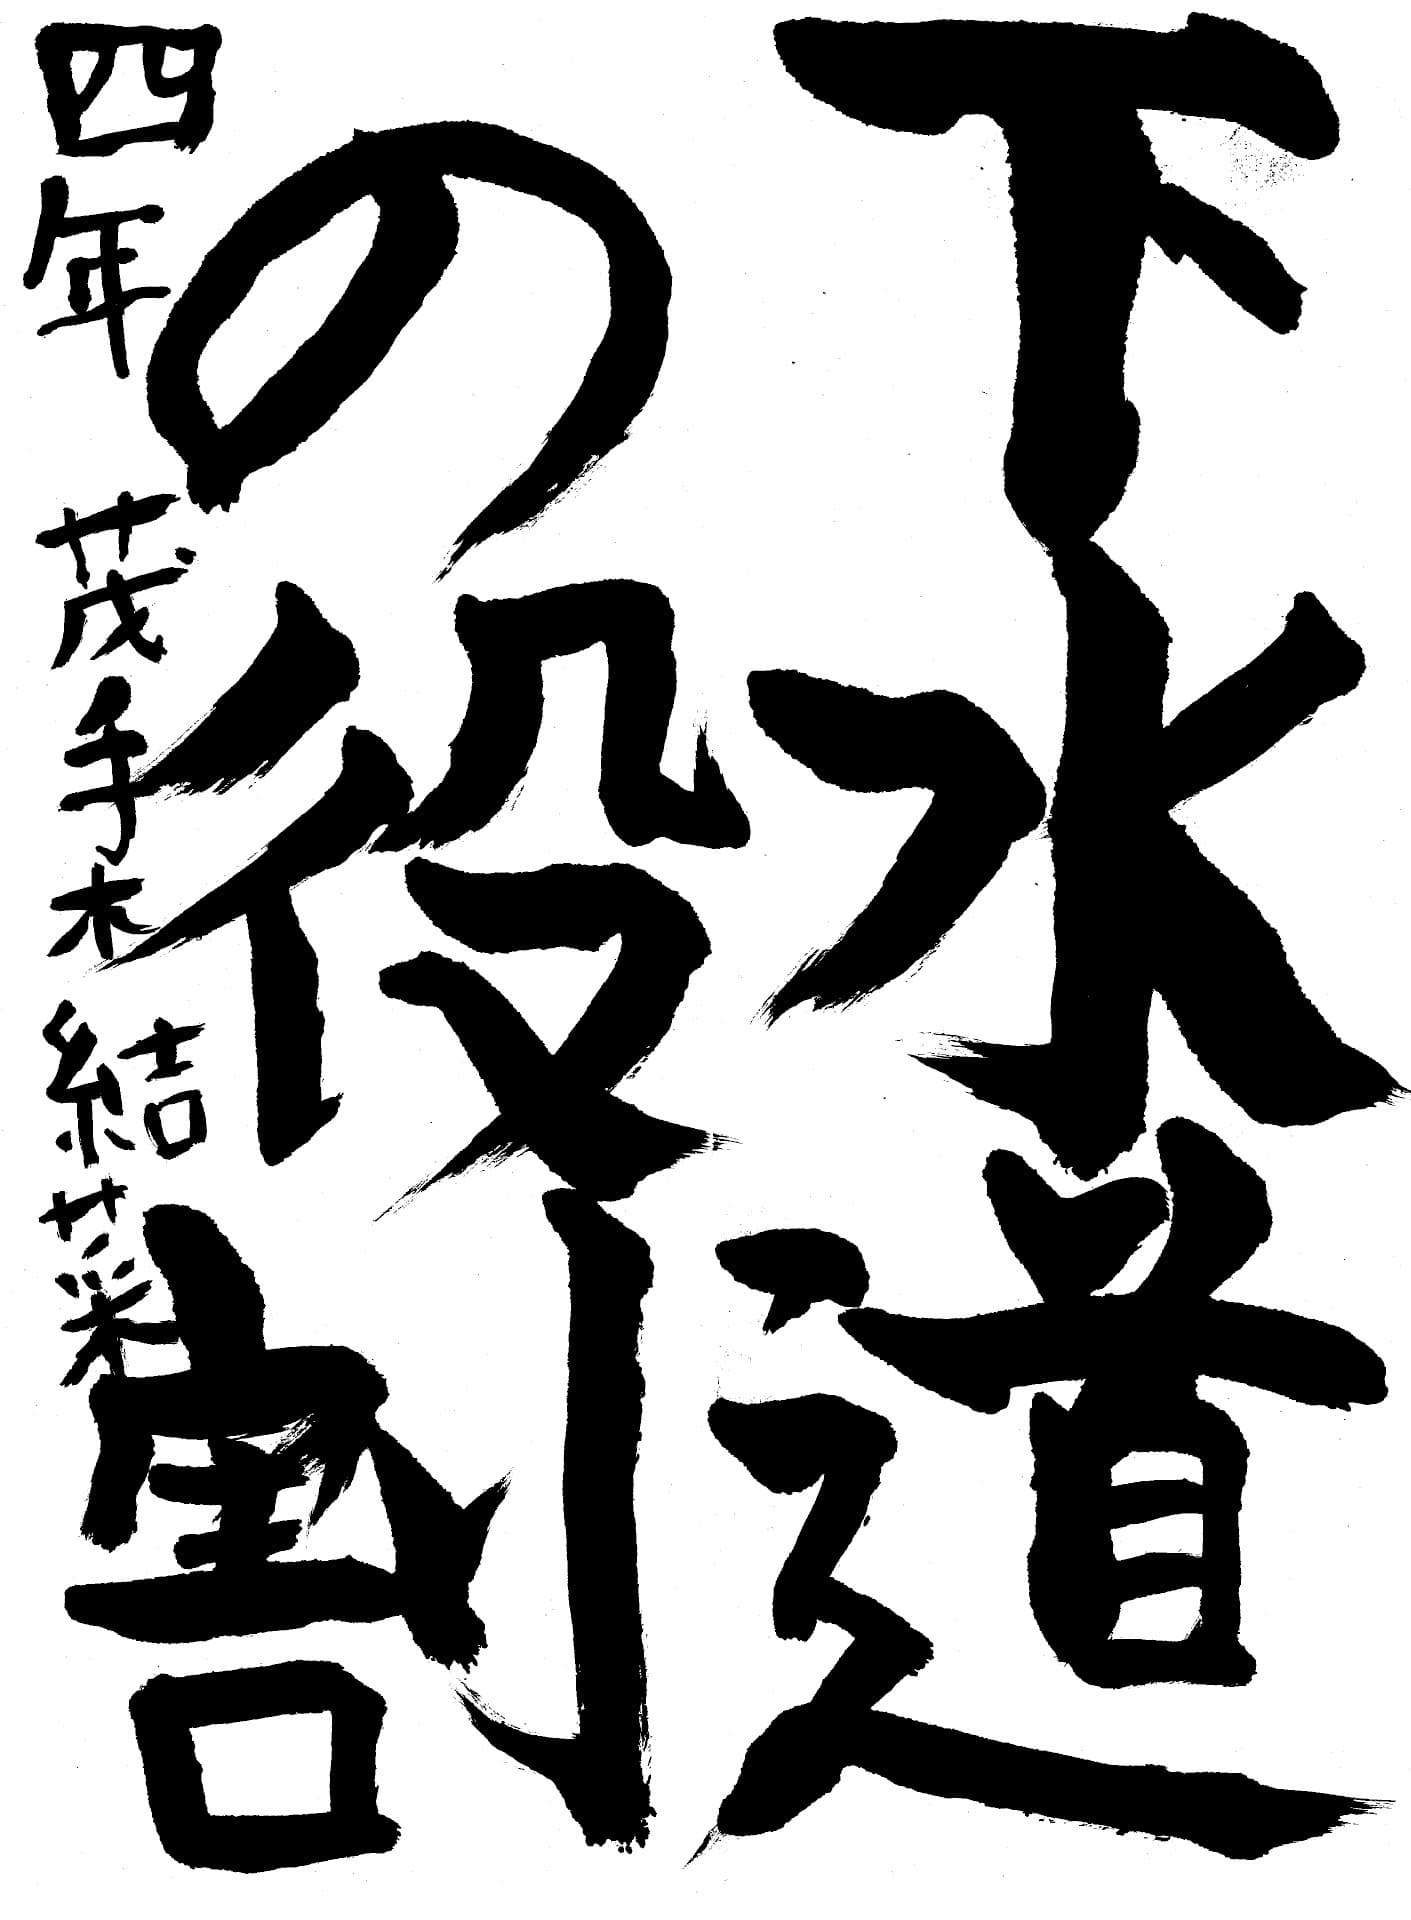 下水道
の役割
四年 茂手木 結菜